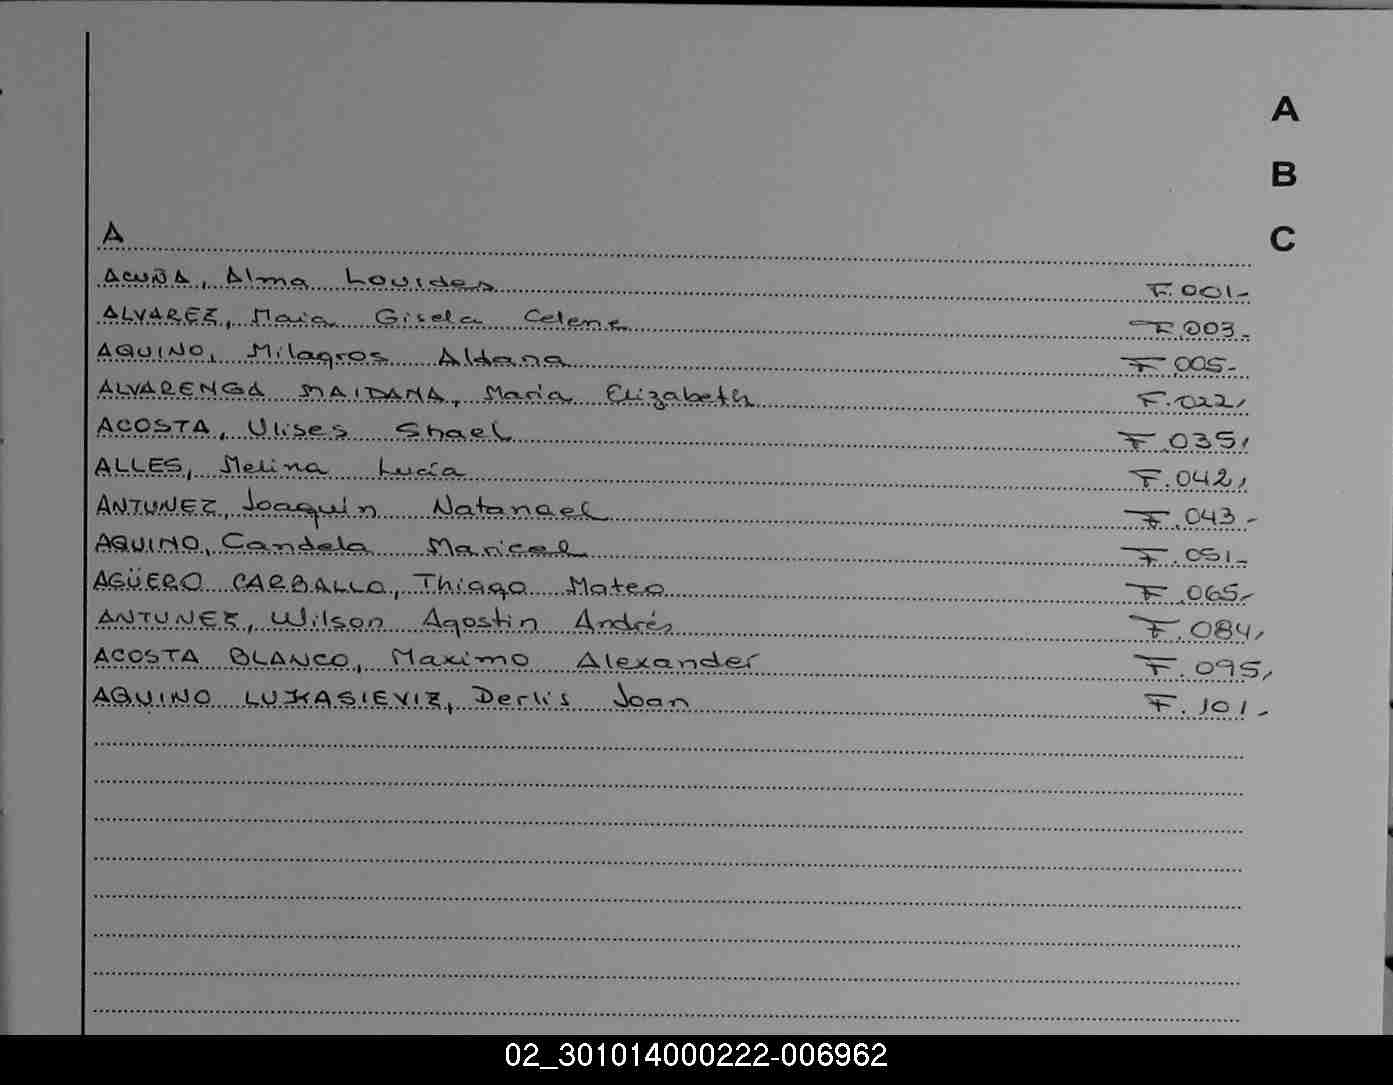 A
B
C
A
ACUÑA, Alma Lourdes F.001-
ALVAREZ, Maia Gisela Celene F.003-
AQUINO, Milagros Aldana F.005-
ALVARENGA MAIDANA, María Elizabeth F.022,
ACOSTA, Ulises Shael F.035,
ALLES, Melina Lucía F.042,
ANTUNEZ, Joaquín Natanael F.043-
AQUINO, Candela Maricel F.051-
AGÜERO CARBALLO, Thiago Mateo F.065-
ANTUNEZ, Wilson Agostin Andrés F.084,
ACOSTA BLANCO, Maximo Alexander F.095,
AQUINO LUKASIEVIZ, Derlis Joan F.101-
02_301014000222-006962